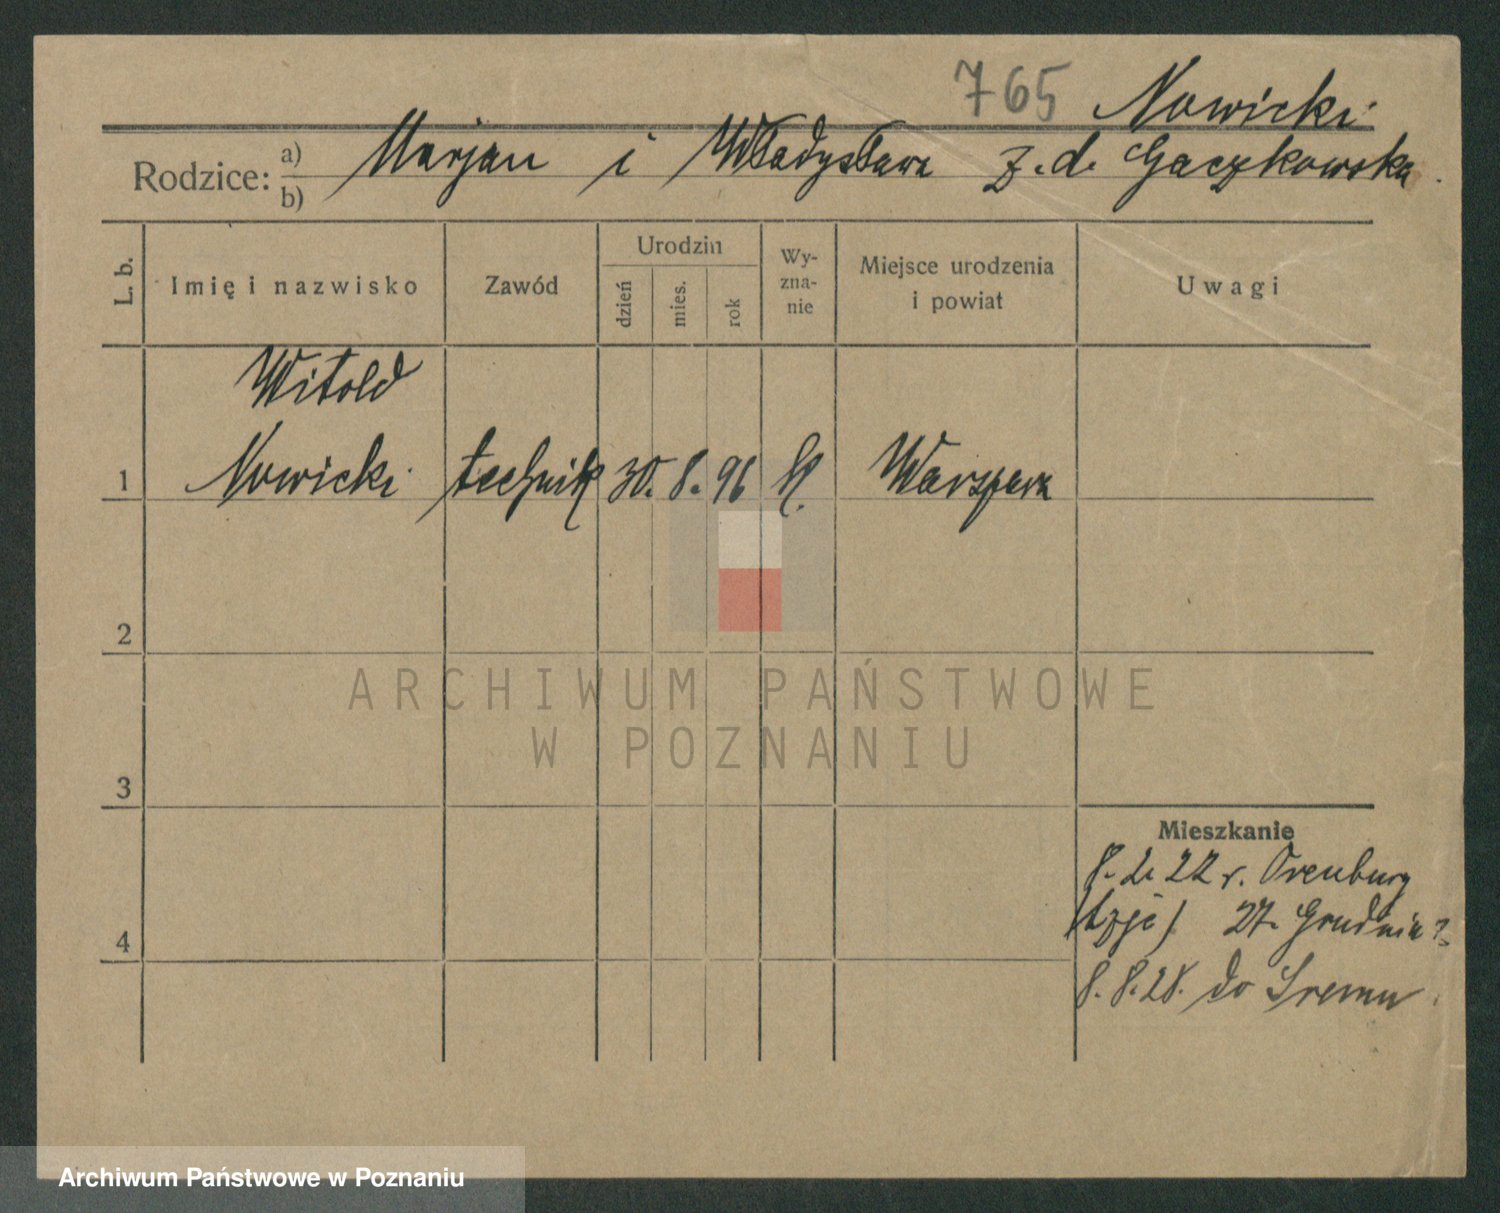 765 Nowicki
Rodzice: a) b) Marjan i Władysława z. d. Gaczkowska
L. b. Imię i nazwisko Zawód Urodzin dzień mies. rok Wy- zna- nie Miejsce urodzenia i powiat Uwagi
Witold
1 Nowicki technik 30. 8. 96 Warszawa
2
ARCHIWUM PAŃSTWOWE
W POZNANIU
3
Mieszkanie
8. 2. 22 r. Orenburg
27. Grudnia 2
4
8. 8. 28. do Śremu
Archiwum Państwowe w Poznaniu